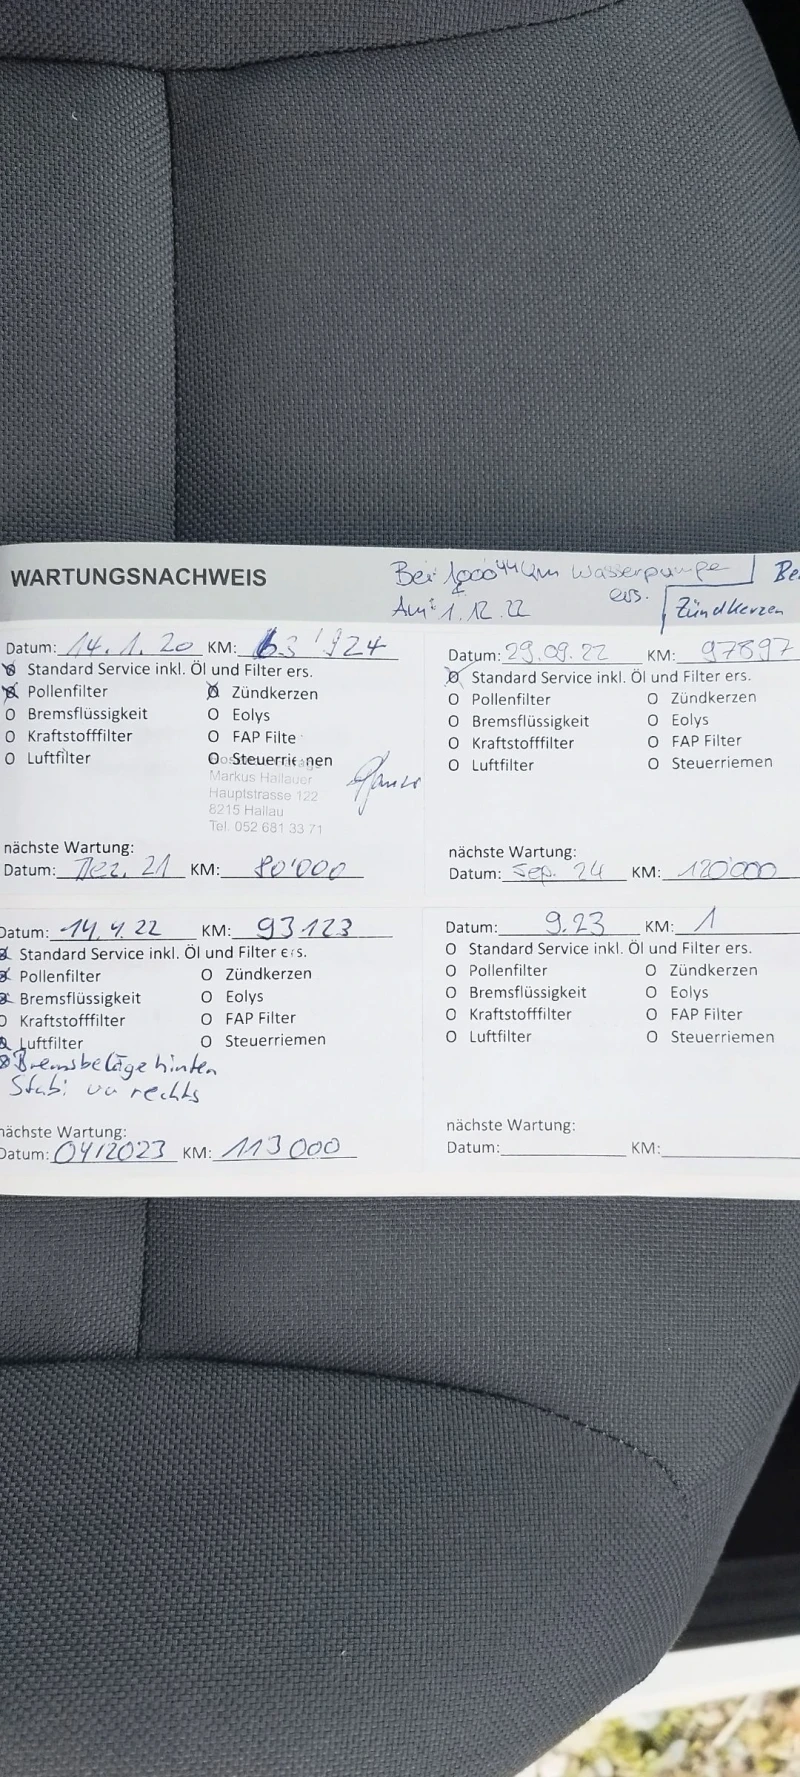 WARTUNGSNACHWEIS
Bei 100044 km Wasserpumpe ers.
Am: 1.12.22
Be
Zündkerzen
Datum: 14.1.20 KM: 63'924
Standard Service inkl. Öl und Filter ers.
Pollenfilter O Zündkerzen
O Bremsflüssigkeit O Eolys
O Kraftstofffilter O FAP Filte
O Luftfilter O Steuerrie nen
Markus Hallauer
Hauptstrasse 122
8215 Hallau
Tel. 052 681 33 71
nächste Wartung:
Datum: Dez. 21 KM: 80'000
Datum: 29.09.22 KM: 97897
O Standard Service inkl. Öl und Filter ers.
O Pollenfilter O Zündkerzen
O Bremsflüssigkeit O Eolys
O Kraftstofffilter O FAP Filter
O Luftfilter O Steuerriemen
nächste Wartung:
Datum: Sep. 24 KM: 120'000
Datum: 14.4.22 KM: 93123
Standard Service inkl. Öl und Filter ers.
Pollenfilter O Zündkerzen
Bremsflüssigkeit O Eolys
O Kraftstofffilter O FAP Filter
Luftfilter O Steuerriemen
Bremsbeläge hinten
Stabi vo rechts
nächste Wartung:
Datum: 04/2023 KM: 113000
Datum: 9.23 KM: 1
O Standard Service inkl. Öl und Filter ers.
O Pollenfilter O Zündkerzen
O Bremsflüssigkeit O Eolys
O Kraftstofffilter O FAP Filter
O Luftfilter O Steuerriemen
nächste Wartung:
Datum: KM: